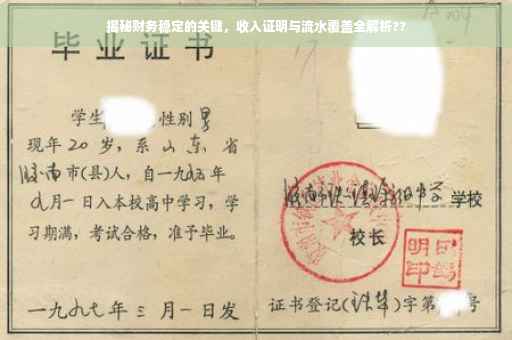 揭秘财务稳定的关键，收入证明与流水覆盖全解析??
毕业证书
学生 性别 男
现年 20 岁，系 山 东 省
济南市(县)人，自一九九五年
九月一日入本校高中学习，学
习期满，考试合格，准予毕业。
一九九七年三月一日发
学校
校长
证书登记( )字第 号